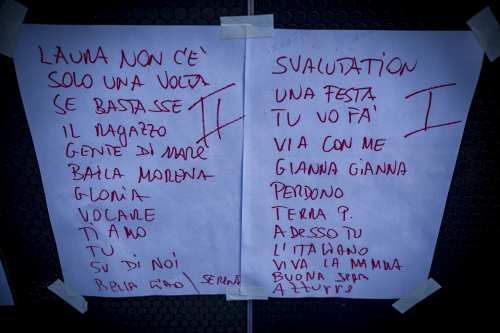 LAURA NON C'È
SOLO UNA VOLTA
SE BASTASSE
II
IL RAGAZZO
GENTE DI MARE
BAILA MORENA
GLORIA
VOLARE
TI AMO
TU
SU DI NOI
BELLA CIAO / SERENA
SVALUTATION
UNA FESTA
I
TU VO FÀ
VIA CON ME
GIANNA GIANNA
PERDONO
TERRA P.
ADESSO TU
L'ITALIANO
VIVA LA MAMMA
BUONA SERA
AZZURRO